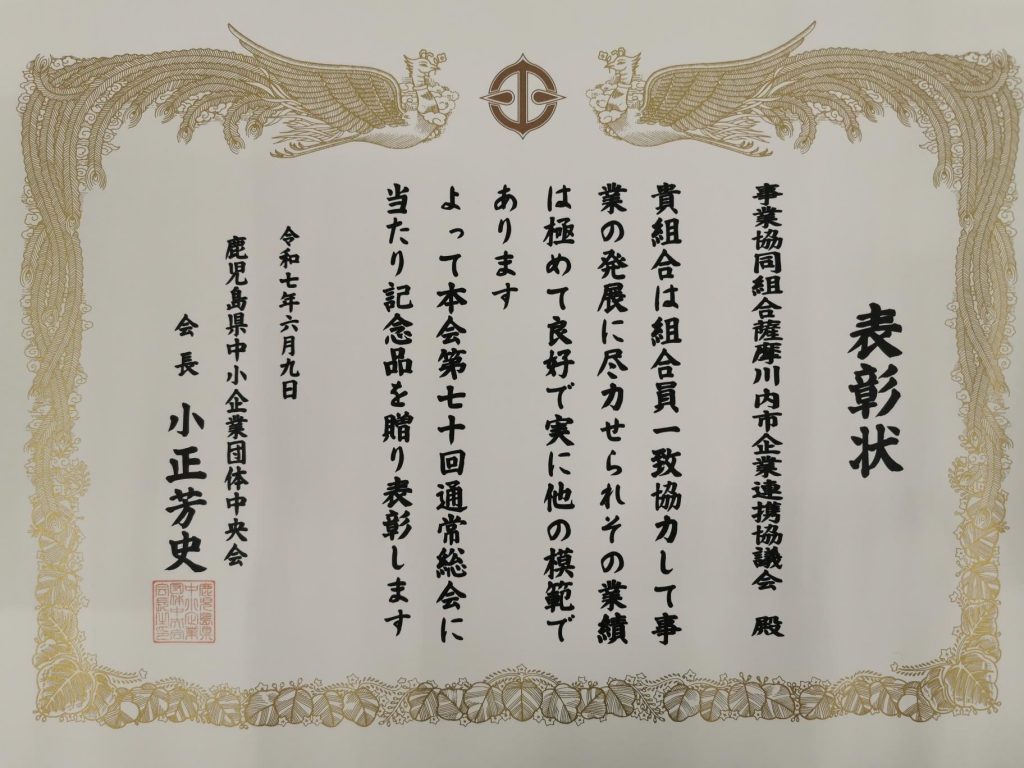 表彰状
事業協同組合薩摩川内市企業連携協議会 殿
貴組合は組合員一致協力して事
業の発展に尽力せられその業績
は極めて良好で実に他の模範で
あります
よって本会第七十回通常総会に
当たり記念品を贈り表彰します
令和七年六月九日
鹿児島県中小企業団体中央会
会長 小正芳史